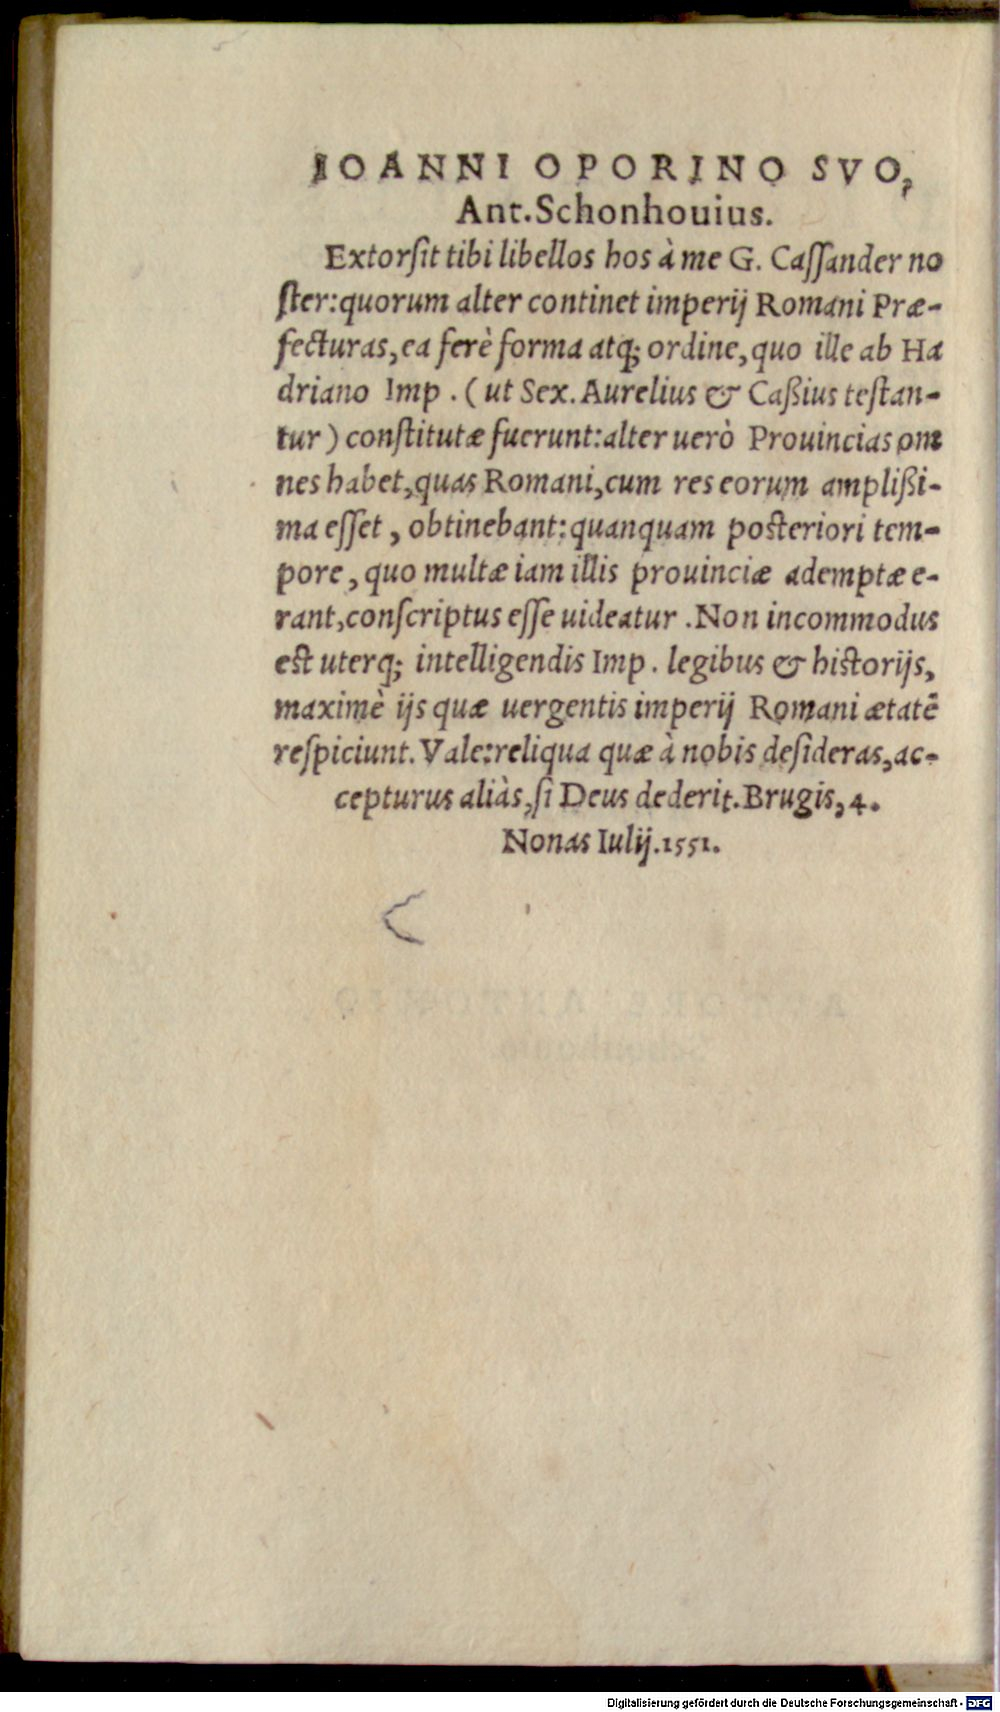 IOANNI OPORINO SVO,
Ant. Schonhouius.
Extorſit tibi libellos hos à me G. Caſſander no
ſter: quorum alter continet imperij Romani Præ-
fecturas, ea ferè forma atq; ordine, quo ille ab Ha
driano Imp. (ut Sex. Aurelius & Caßius teſtan-
tur) conſtitutæ fuerunt: alter uerò Prouincias om
nes habet, quas Romani, cum res eorum amplißi-
ma eſſet, obtinebant: quanquam poſteriori tem-
pore, quo multæ iam illis prouinciæ ademptæ e-
rant, conſcriptus eſſe uideatur. Non incommodus
eſt uterq; intelligendis Imp. legibus & hiſtorijs,
maximè ijs quæ uergentis imperij Romani ætatē
reſpiciunt. Vale: reliqua quæ à nobis deſideras, ac-
cepturus aliàs, ſi Deus dederit. Brugis, 4.
Nonas Iulij. 1551.
Digitalisierung gefördert durch die Deutsche Forschungsgemeinschaft - DFG